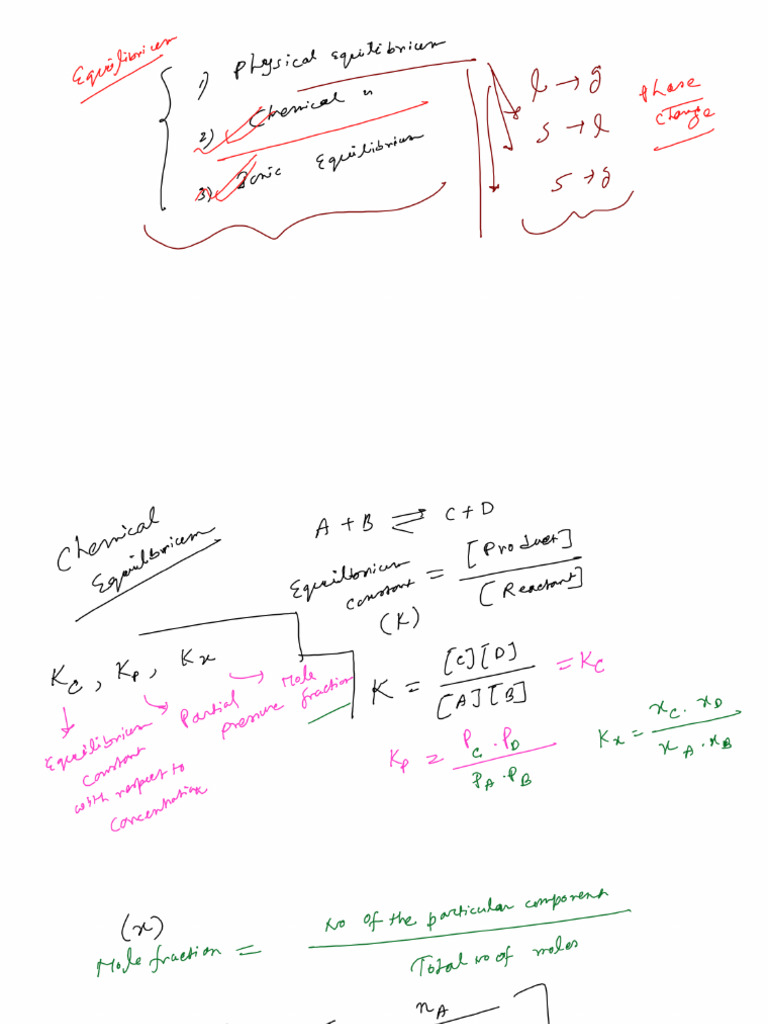 Equilibrium
1) Physical equilibrium
2) Chemical "
3) Ionic Equilibrium
l → g
s → l
s → g
Phase
change
Chemical
Equilibrium
A + B ⇌ C + D
Equilibrium constant = [Product] / [Reactant]
(K)
Kc, Kp, Kx
Equilibrium
constant
with respect to
concentration
Partial
pressure
Mole
fraction
K = [C][D] / [A][B] = Kc
Kp = PC . PD / PA . PB
Kx = xC . xD / xA . xB
(x)
Mole fraction = No of the particular component / Total no of moles
nA